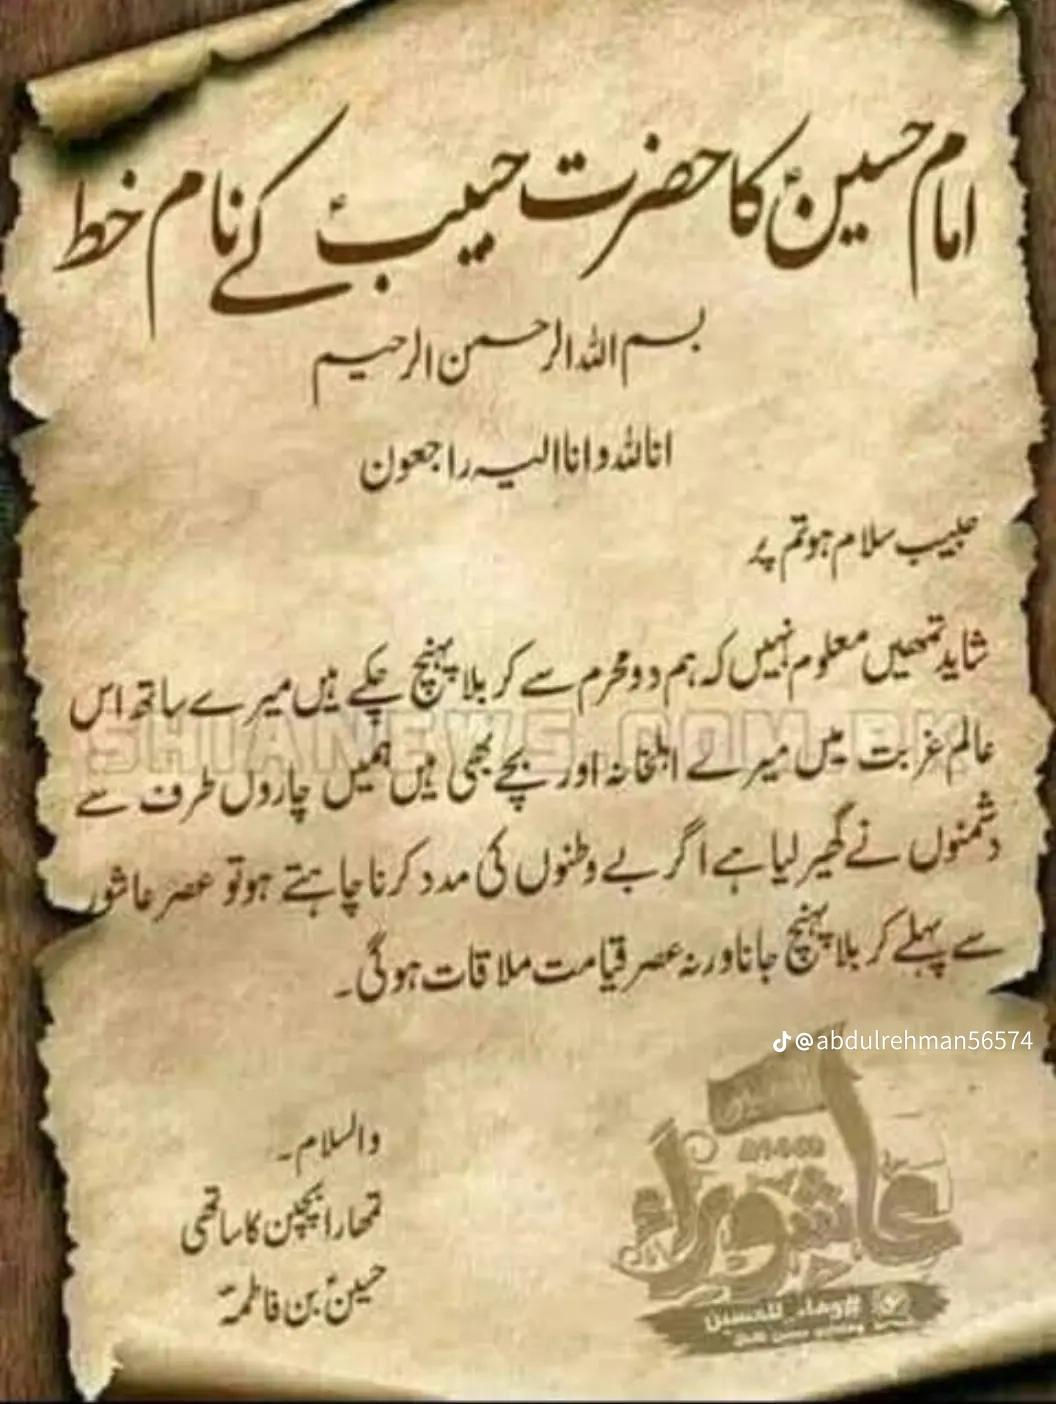 امام حسینؑ کا حضرت حبیبؑ کے نام خط
بسم اللہ الرحمن الرحیم
انا للہ وانا الیہ راجعون
حبیب سلام ہو تم پر
شاید تمھیں معلوم نہیں کہ ہم دو محرم سے کربلا پہنچ چکے ہیں میرے ساتھ اس
عالم غربت میں میرے اہلخانہ اور بچے بھی ہیں ہمیں چاروں طرف سے
SHIANEWS.COM.PK
دشمنوں نے گھیر لیا ہے اگر بے وطنوں کی مدد کرنا چاہتے ہو تو عصر عاشور
سے پہلے کربلا پہنچ جانا ورنہ عصر قیامت ملاقات ہوگی۔
@abdulrehman56574
والسلام۔
تمھارا بچپن کا ساتھی
حسینؑ بن فاطمہؑ
عاشوراء